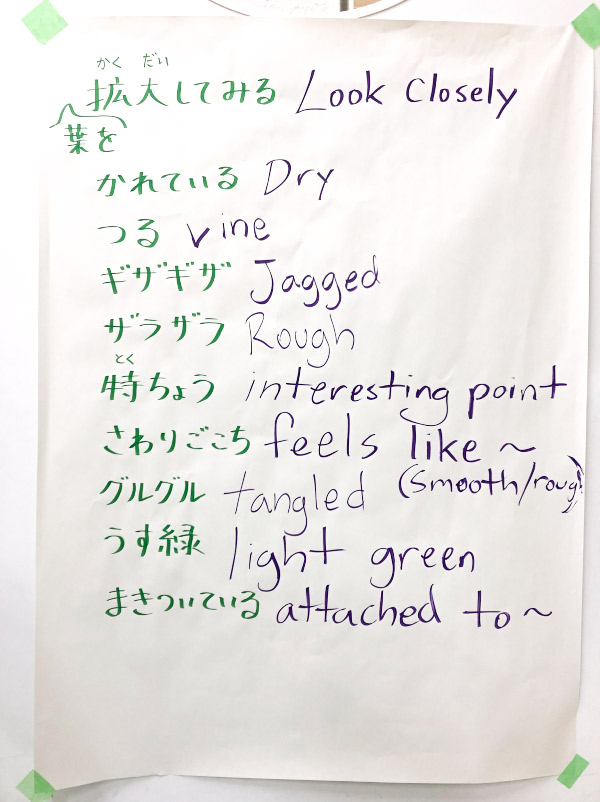 かく だい
拡大してみる Look Closely
葉を
かれている Dry
つる vine
ギザギザ Jagged
ザラザラ Rough
とく
特ちょう interesting point
さわりごこち feels like ~
グルグル tangled (smooth/rough)
うす緑 light green
まきついている attached to ~